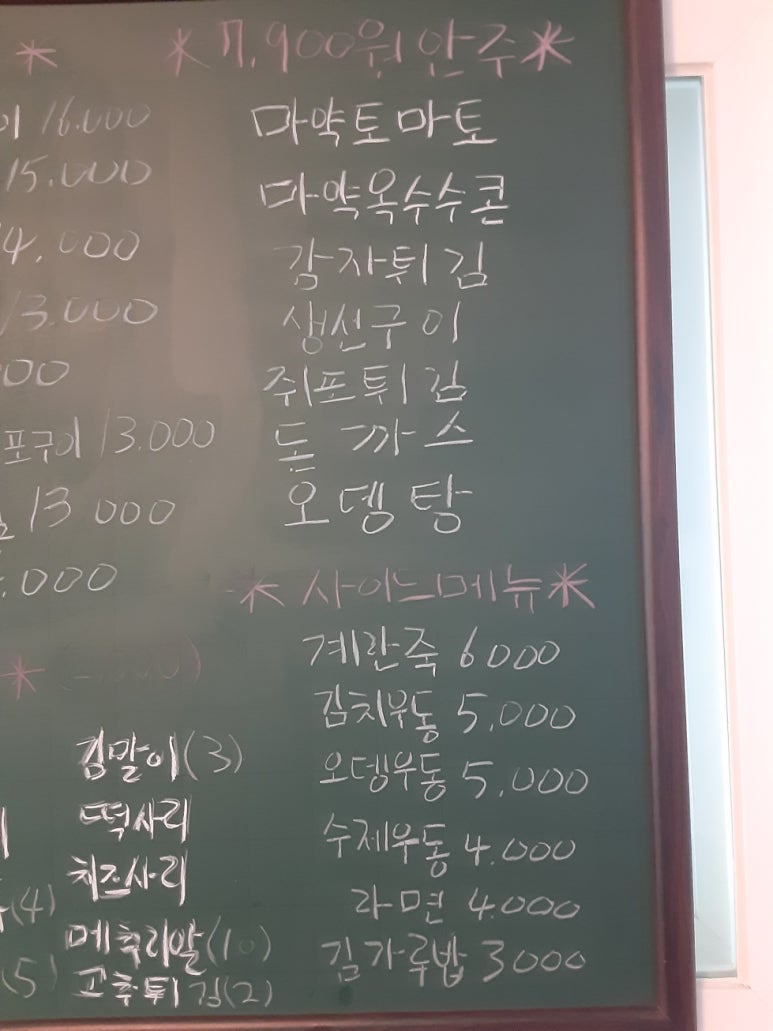 *
이 16.000
15.000
4.000
13.000
00
포구이 13.000
13 000
.000
*
김말이(3)
떡사리
치즈사리
(4)
메추리알(10)
(5)
고추튀김(2)
*7,900원안주*
마약토마토
마약옥수수콘
감자튀김
생선구이
쥐포튀김
돈까스
오뎅탕
*사이드메뉴*
계란죽 6000
김치우동 5,000
오뎅우동 5,000
수제우동 4.000
라면 4000
김가루밥 3000